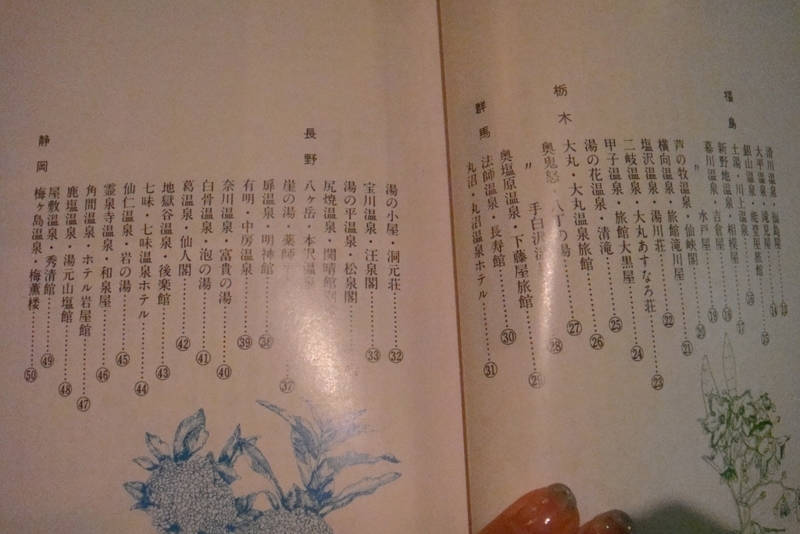 清川温泉・福島屋……⑬
大平温泉・滝見屋……⑭
銀山温泉・能登屋旅館……⑮
福島
土湯・川上温泉……⑰
新野地温泉・相模屋……⑱
幕川温泉・吉倉屋……⑲
〃 水戸屋……⑳
芦の牧温泉・仙峡閣……㉑
横向温泉・旅館滝川屋……㉒
塩沢温泉・湯川荘……㉒
二岐温泉・大丸あすなろ荘……㉓
甲子温泉・旅館大黒屋……㉔
栃木
湯の花温泉・清滝……㉕
大丸・大丸温泉旅館……㉖
奥鬼怒・八丁の湯……㉗
〃 手白沢温泉……㉘
奥塩原温泉・下藤屋旅館……㉙
群馬
法師温泉・長寿館……㉚
丸沼・丸沼温泉ホテル……㉛
湯の小屋・洞元荘……㉜
宝川温泉・汪泉閣……㉝
湯の平温泉・松泉閣……
尻焼温泉・関晴館
長野
八ヶ岳・本沢温泉
崖の湯・薬師……㊲
扉温泉・明神館……㊳
有明・中房温泉……㊴
奈川温泉・富貴の湯……㊵
白骨温泉・泡の湯……㊶
葛温泉・仙人閣……㊷
地獄谷温泉・後楽館……㊸
七味・七味温泉ホテル……㊹
仙仁温泉・岩の湯……㊺
霊泉寺温泉・和泉屋……㊻
角間温泉・ホテル岩屋館……㊼
鹿塩温泉・湯元山塩館……㊽
屋敷温泉・秀清館……㊾
静岡
梅ヶ島温泉・梅薫楼……㊿